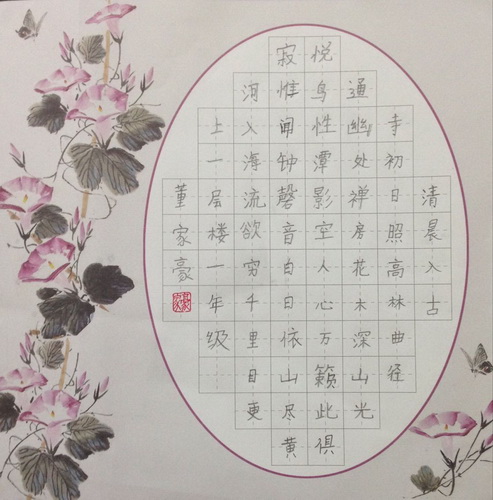 清晨入古
寺初日照高林曲径
通幽处禅房花木深山光
悦鸟性潭影空人心万籁此俱
寂惟闻钟磬音白日依山尽黄
河入海流欲穷千里目更
上一层楼一年级
董家豪